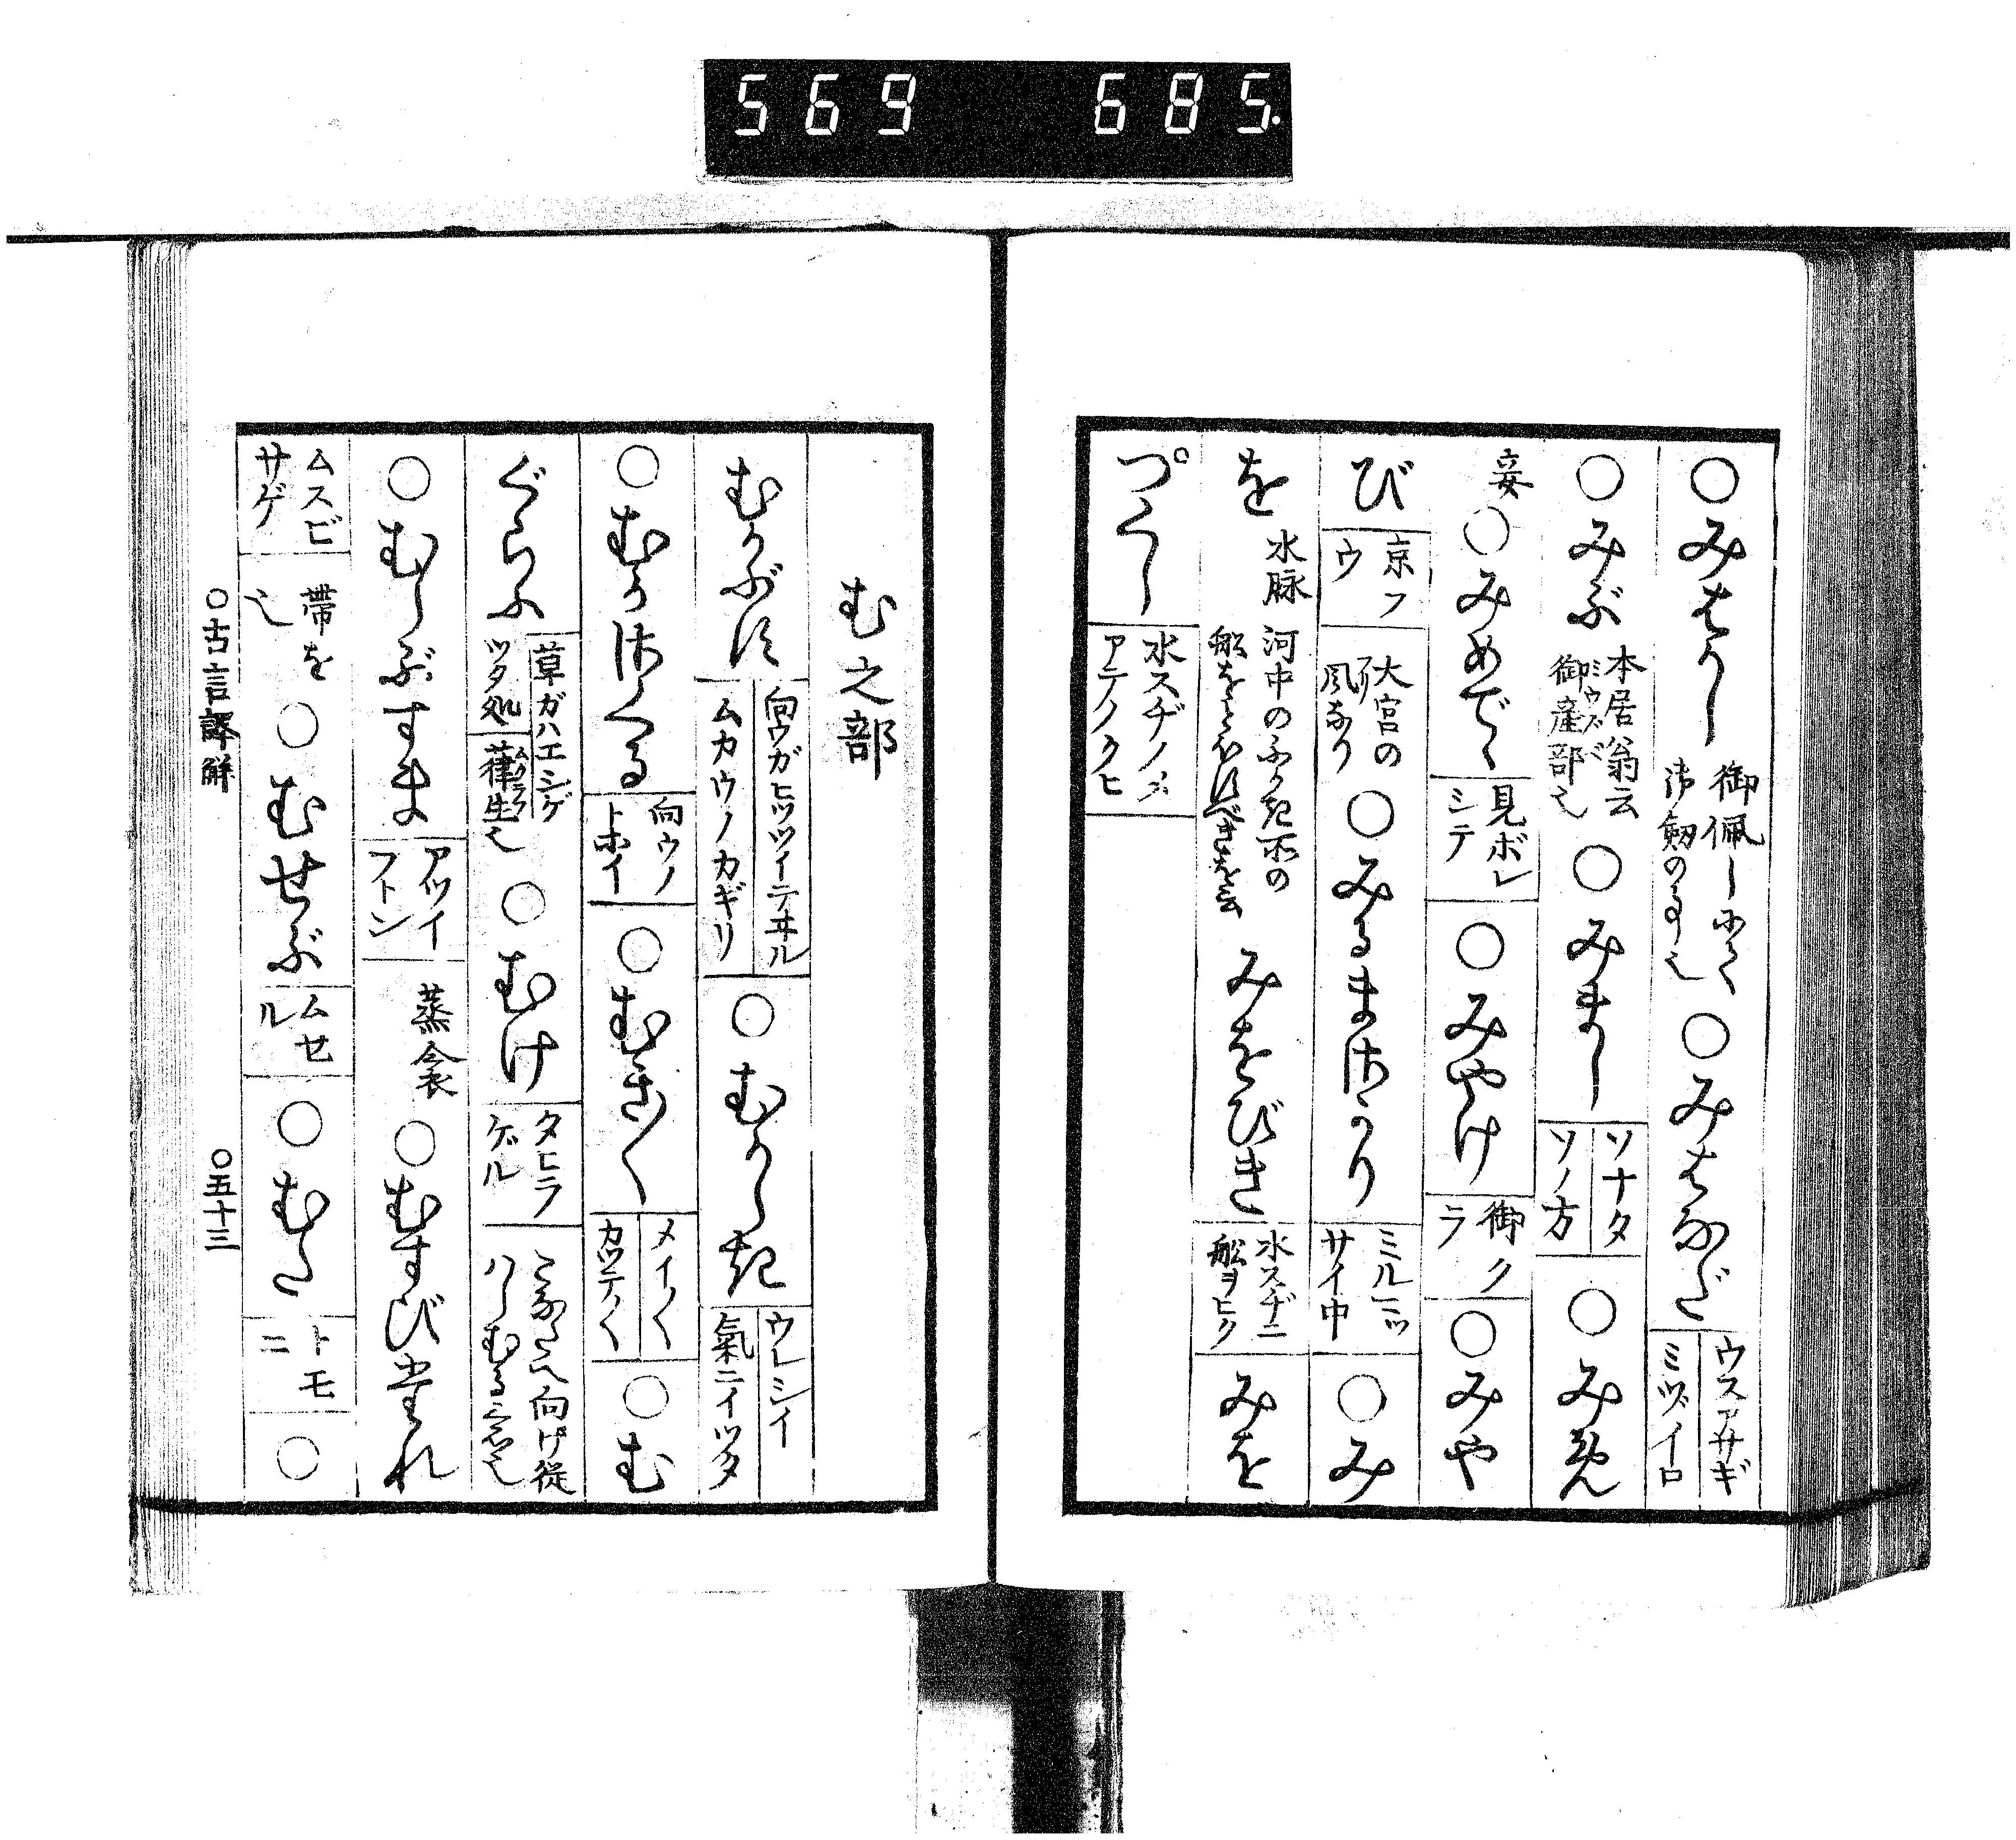 569 685.
○みはかし 御佩しにて 御剱の事也 ○みはなだ ウスアサギ ミヅイロ
○みぶ 本居翁云 御産部也 ミウブベ ○みまし ソナタ ソノ方 ○みめ
妾 ○みめでゝ 見ボレシテ ○みやけ 御クラ ○みや
び 京フウ 大宮の風なり フリ ○みるまさかり ミルミツサイ中 ○み
を 水脉 河中のふかき所の みをびき 水スヂニ船ヲヒク みを
つくし 水スヂノアテノクヒ
む之部
むかぶす 向ウガヒツツイテヰル ムカウノカギリ ○むかしき ウレシイ 氣ニイツタ
○むかさくる 向ウノトホイ ○むきむき メイ〱 カツテ〱 ○む
ぐらふ 草ガハエシゲツタ処 葎生也 ムグラフ ○むけ タヒラゲル こなたへ向け従はしむる
○むしぶすま アツイフトン 蒸衾 ○むすびたれ
ムスビサゲ 帯を也 ○むせぶ ムセル ○むた トモニ ○
○古言譯解 ○五十三